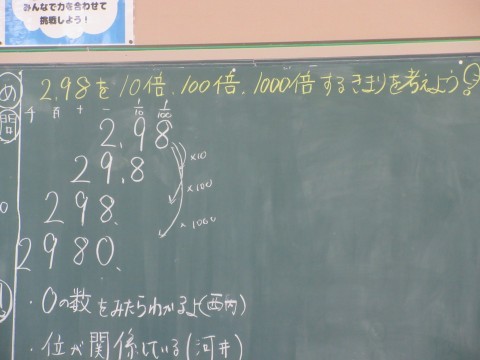 みんなで力を合わせて
挑戦しよう!
め 2.98を10倍、100倍、1000倍するきまりを考えよう。
問 千 百 十 一 1/10 1/100
2.98
29.8 ×10
298. ×100
2980. ×1000
・0の数をみたらわかるよ(西内)
・位が関係している(河井)